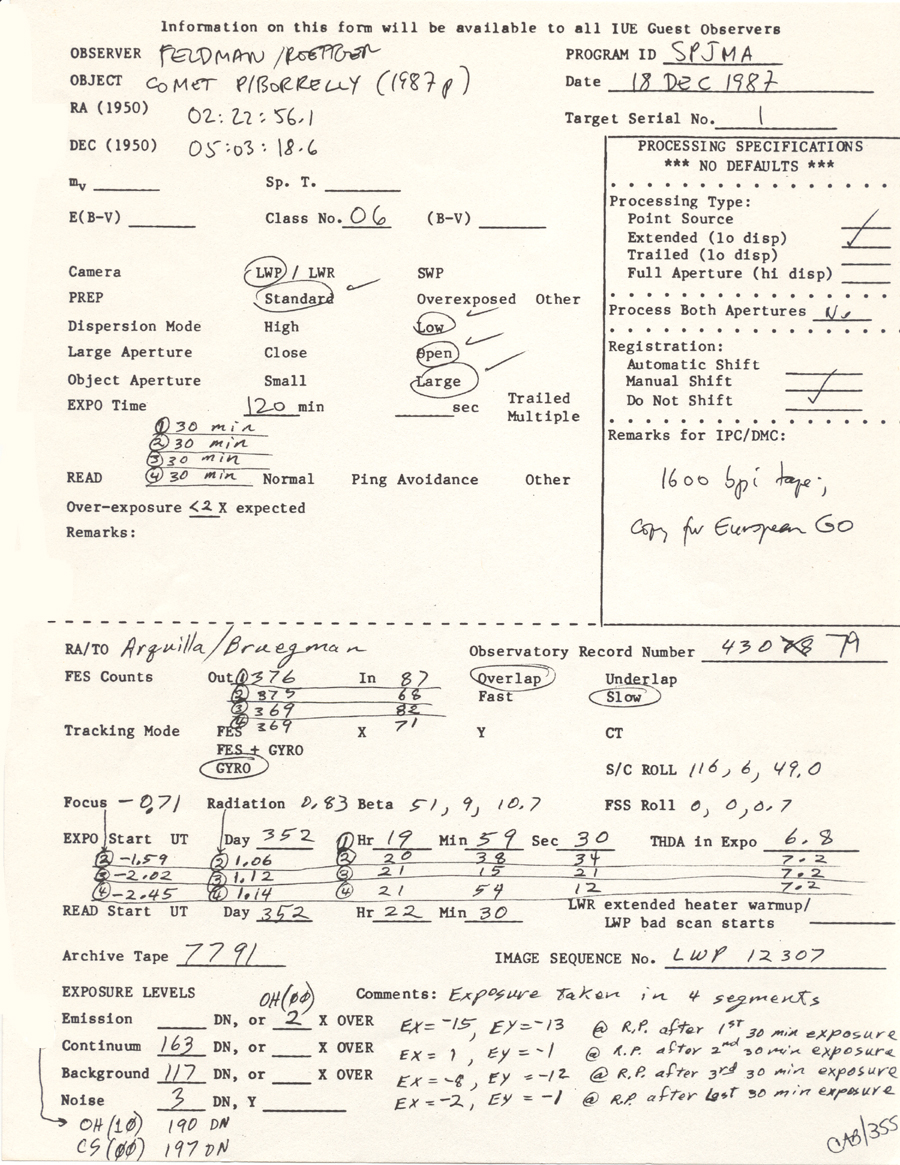 Information on this form will be available to all IUE Guest Observers
OBSERVER FELDMAN/ROETTGER PROGRAM ID SPJMA
OBJECT COMET P/BORRELLY (1987p) Date 18 DEC 1987
RA (1950) 02:22:56.1 Target Serial No. 1
DEC (1950) 05:03:18.6
PROCESSING SPECIFICATIONS
*** NO DEFAULTS ***
mv Sp. T.
Processing Type:
E(B-V) Class No. 06 (B-V)
Point Source
Extended (lo disp) ✓
Trailed (lo disp)
Full Aperture (hi disp)
Camera LWP / LWR SWP
PREP Standard ✓ Overexposed Other
Process Both Apertures No
Dispersion Mode High Low ✓
Large Aperture Close Open ✓
Object Aperture Small Large ✓
Registration:
Automatic Shift
Manual Shift
Do Not Shift ✓
EXPO Time 120 min sec Trailed
Multiple
① 30 min
② 30 min
③ 30 min
④ 30 min
READ Normal Ping Avoidance Other
Over-exposure <2 X expected
Remarks:
Remarks for IPC/DMC:
1600 bpi tape;
Copy for European GO
RA/TO Arquilla/Bruegman Observatory Record Number 43079
FES Counts Out ① 376 In 87 Overlap Underlap
② 375 68 Fast Slow
③ 369 82
④ 369 71
Tracking Mode FES X Y CT
FES + GYRO
GYRO S/C ROLL 116, 6, 49.0
Focus -0.71 Radiation 0.83 Beta 51, 9, 10.7 FSS Roll 0, 0, 0.7
EXPO Start UT Day 352 ① Hr 19 Min 59 Sec 30 THDA in Expo 6.8
② -1.59 ② 1.06 ② 20 38 34 7.2
③ -2.02 ③ 1.12 ③ 21 15 21 7.2
④ -2.45 ④ 1.14 ④ 21 54 12 7.2
READ Start UT Day 352 Hr 22 Min 30 LWR extended heater warmup/
LWP bad scan starts
Archive Tape 7791 IMAGE SEQUENCE No. LWP 12307
EXPOSURE LEVELS OH(00) Comments: Exposure taken in 4 segments
Emission DN, or 2 X OVER EX=-15, EY=-13 @ R.P. after 1st 30 min exposure
Continuum 163 DN, or X OVER EX= 1, EY=-1 @ R.P. after 2nd 30 min exposure
Background 117 DN, or X OVER EX=-8, EY=-12 @ R.P. after 3rd 30 min exposure
Noise 3 DN, Y EX=-2, EY=-1 @ R.P. after last 30 min exposure
OH(10) 190 DN
CS(00) 197 DN
CAB/355